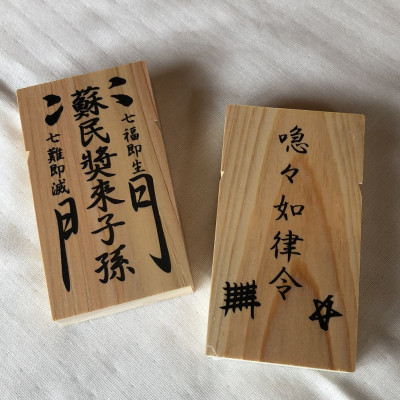 七福即生
蘇民獎來子孫
七難即滅
門
喼々如律令